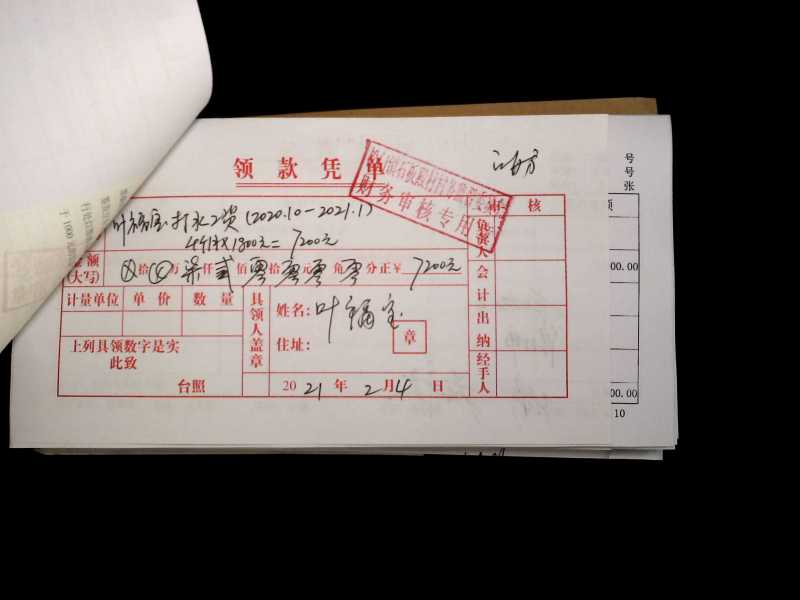 领款凭单
财务审核专用
叶福宝打水工资(2020.10-2021.1)
4个月×1800元=7200元
金额
(大写)
⊗拾⊗万柒仟贰佰零拾零元零角零分正¥7200元
计量单位 单价 数量
上列具领数字是实
此致
台照
具领人盖章
姓名:叶福宝
住址:
章
2021年2月4日
审核
负责人
会计
出纳
经手人
号
号
张
额
00.00
00.00
10
于1000